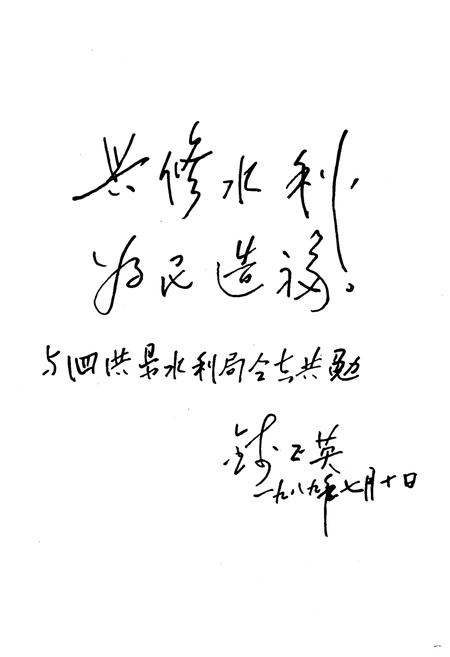 共修水利,
为民造福。
与泗洪县水利局同志共勉
钱正英
一九八九年七月十日